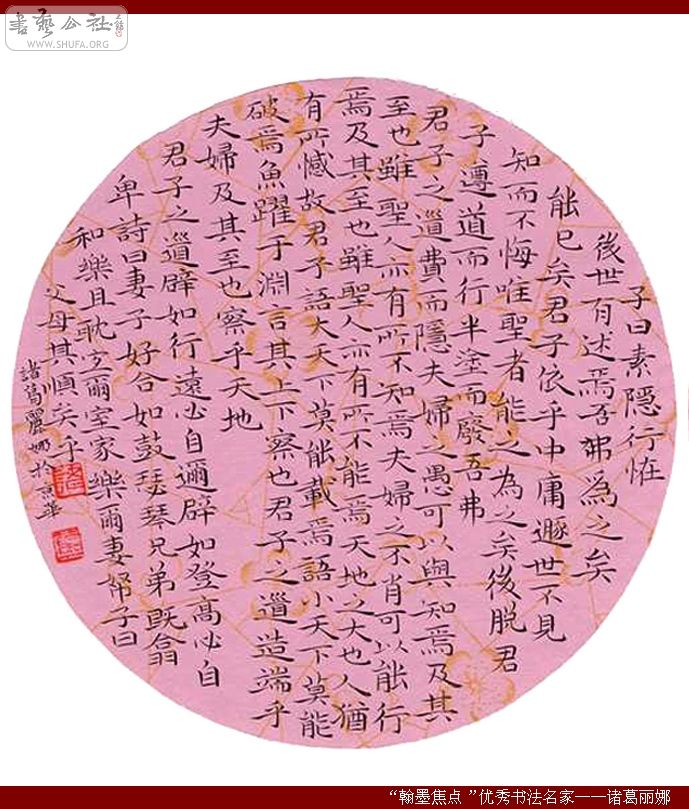 書藝公社
WWW.SHUFA.ORG
子曰素隱行恠
後世有述焉吾弗爲之矣
能已矣君子依乎中庸遯世不見
知而不悔唯聖者能之為之矣後脱君
子遵道而行半塗而廢吾弗
君子之道費而隱夫婦之愚可以與知焉及其
至也雖聖人亦有所不知焉夫婦之不肖可以能行
焉及其至也雖聖人亦有所不能焉天地之大也人猶
有所憾故君子語大天下莫能載焉語小天下莫能
破焉魚躍于淵言其上下察也君子之道造端乎
夫婦及其至也察乎天地
君子之道辟如行遠必自邇辟如登高必自
卑詩曰妻子好合如鼓瑟琴兄弟既翕
和樂且耽宜爾室家樂爾妻帑子曰
父母其順矣乎
諸葛麗娜於京華
“翰墨焦点 ”优秀书法名家——诸葛丽娜